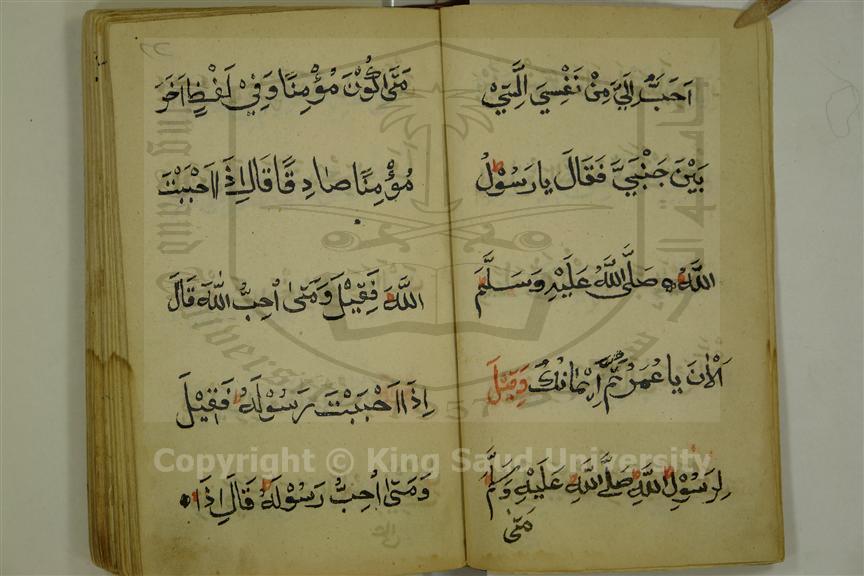 اَحَبُّ اِلَيَّ مِنْ نَفْسِيَ الَّتِيْ
بَيْنَ جَنْبَيَّ فَقَالَ يا رَسُوْلُ
اللهِ صَلَّى اللهُ عَلَيْهِ وَسَلَّمَ
اَلْاٰنَ يا عُمَرُ تَمَّ اِيْمَانُكَ وَقِيْلَ
لِرَسُوْلِ اللهِ صَلَّى اللهُ عَلَيْهِ وَسَلَّمَ
مَتٰى
مَتٰى اَكُوْنُ مُؤْمِنًا وَفِيْ لَفْظٍ اٰخَرَ
مُؤْمِنًا صَادِقًا قَالَ اِذَا اَحْبَبْتَ
اللهَ فَقِيْلَ وَمَتٰى اُحِبُّ اللهَ قَالَ
اِذَا اَحْبَبْتَ رَسُوْلَهُ فَقِيْلَ
وَمَتٰى اُحِبُّ رَسُوْلَهُ قَالَ اِذَا
Copyright © King Saud University